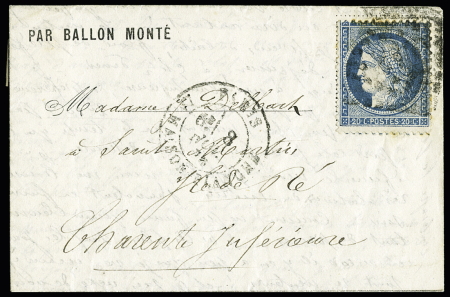 PAR BALLON MONTÉ
20 C POSTES 20 C
Madame Delbart
à Saint Martin
Ile de Ré
Charente Inférieure